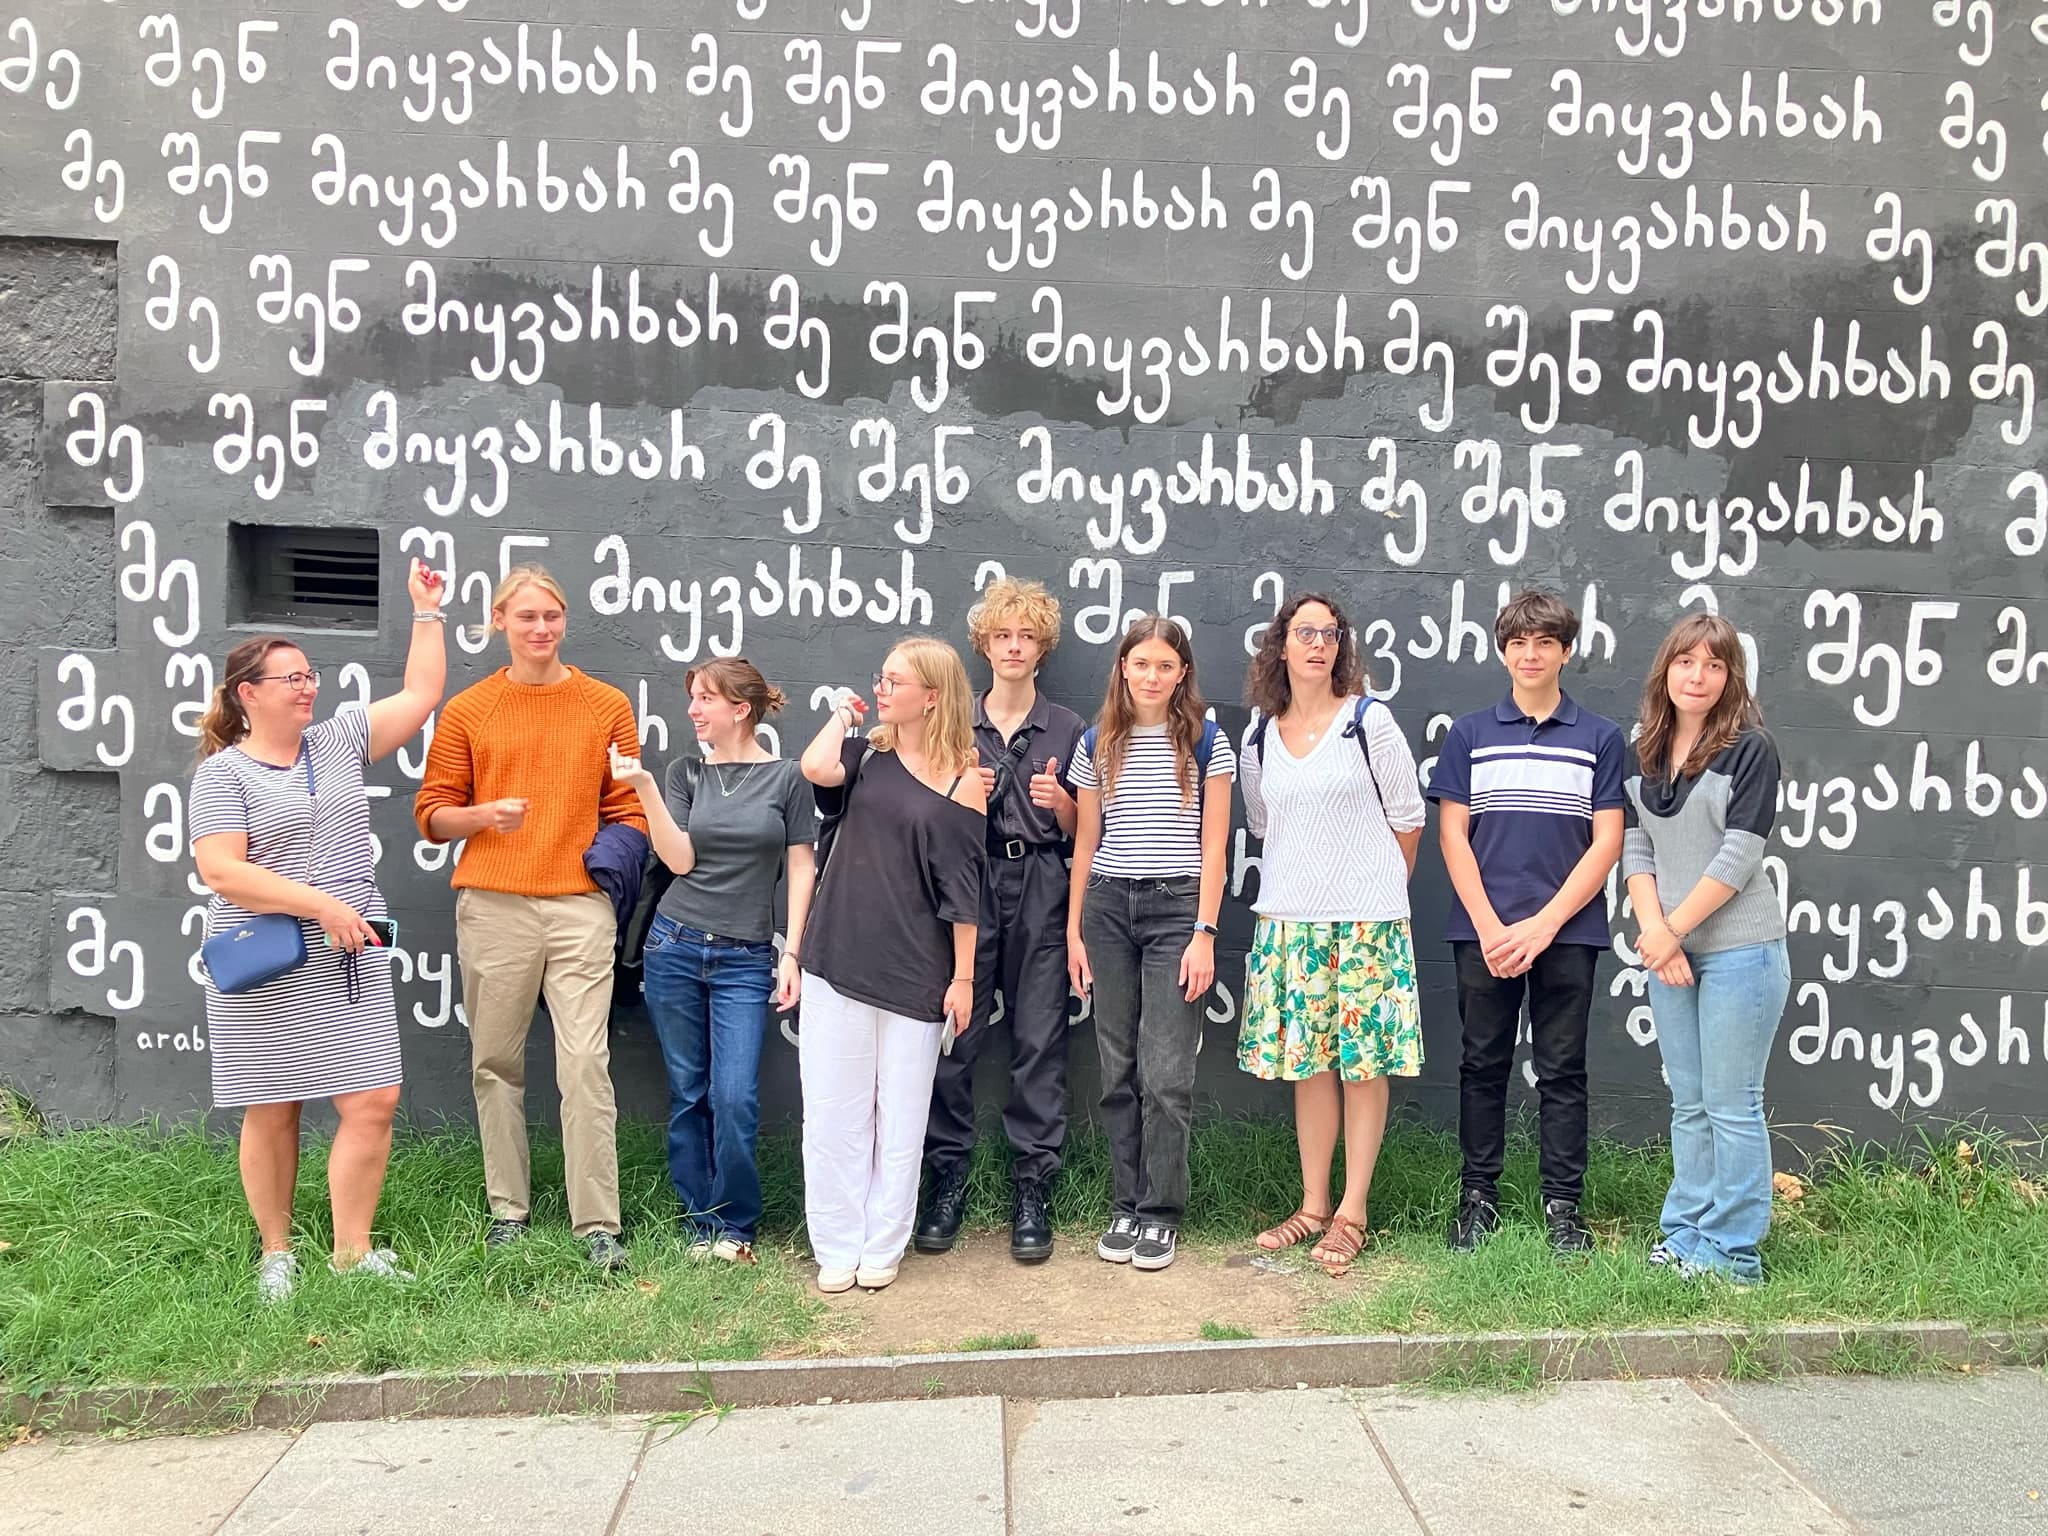 მე შენ მიყვარხარ მე შენ მიყვარხარ მე
მე შენ მიყვარხარ მე შენ მიყვარხარ მე შენ მიყვარხარ მე
მე შენ მიყვარხარ მე შენ მიყვარხარ მე შენ მიყვარხარ მე შენ
მე შენ მიყვარხარ მე შენ მიყვარხარ მე შენ მიყვარხარ მე
მე შენ მიყვარხარ მე შენ მიყვარხარ მე შენ მიყვარხარ
მე შენ მიყვარხარ მე შენ მიყვარხარ შენ
მე
მიყვარხარ
მე
მიყვარხარ
arab